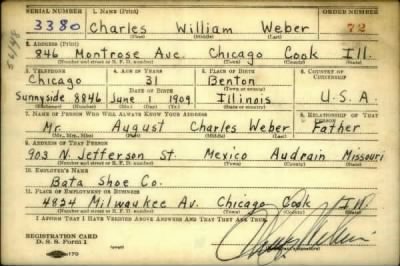 SERIAL NUMBER 1. NAME (Print) ORDER NUMBER
3380 Charles William Weber 72
(First) (Middle) (Last)
2. ADDRESS (Print)
846 Montrose Ave. Chicago Cook Ill.
(Number and street or R. F. D. number) (Town) (County) (State)
3. TELEPHONE 4. AGE IN YEARS 5. PLACE OF BIRTH 6. COUNTRY OF CITIZENSHIP
Chicago 31 Benton
DATE OF BIRTH (Town or county)
Sunnyside 8846 June 1 1909 Illinois U.S.A.
(Exchange) (Number) (Mo.) (Day) (Yr.) (State or country)
7. NAME OF PERSON WHO WILL ALWAYS KNOW YOUR ADDRESS 8. RELATIONSHIP OF THAT PERSON
Mr. August Charles Weber Father
(Mr., Mrs., Miss) (First) (Middle) (Last)
9. ADDRESS OF THAT PERSON
903 N. Jefferson St. Mexico Audrain Missouri
(Number and street or R. F. D. number) (Town) (County) (State)
10. EMPLOYER'S NAME
Bata Shoe Co.
11. PLACE OF EMPLOYMENT OR BUSINESS
4824 Milwaukee Av. Chicago Cook Ill.
(Number and street or R. F. D. number) (Town) (County) (State)
I AFFIRM THAT I HAVE VERIFIED ABOVE ANSWERS AND THAT THEY ARE TRUE.
REGISTRATION CARD
D. S. S. Form 1